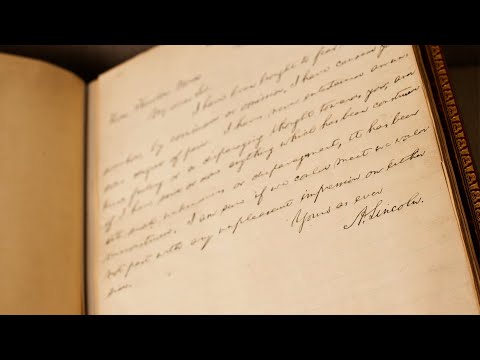 My dear Sir.
I have been brought to fear
by omission or commission, I have caused you
some degree of pain. I have never entertained an un-
kind feeling or a disparaging thought towards you; and
if I have said or done anything which has been construed
into such unkindness or disparagement, it has been
misconstrued. I am sure if we could meet we would
not part with any unpleasant impression on either
side.
Yours as ever
A. Lincoln.